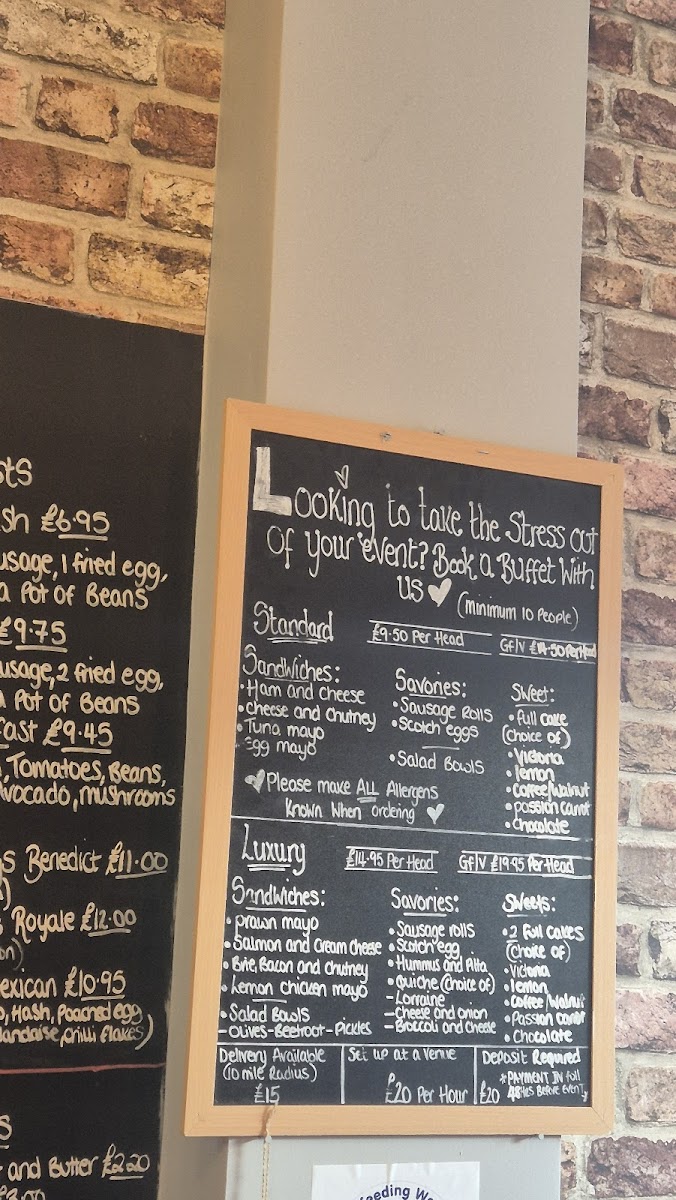 sts
sh £6.95
usage, 1 fried egg,
a Pot of Beans
£9.75
usage, 2 fried egg,
a Pot of Beans
fast £9.45
, Tomatoes, Beans,
Avocado, mushrooms
s Benedict £11.00
s Royale £12.00
on)
exican £10.95
o, Hash, Poached egg
landaise, Chilli flakes)
s
and Butter £2.20
£3.00
Looking to take the Stress out
Of your event? Book a Buffet With
us
(minimum 10 People)
Standard £9.50 Per Head Gf/V £14.50 Per Head
Sandwiches:
• Ham and cheese
• Cheese and Chutney
• Tuna mayo
• Egg mayo
Savories:
• Sausage Rolls
• Scotch eggs
• Salad Bowls
Sweet:
• full cake
(choice of)
• Victoria
• lemon
• coffee/walnut
• passion carrot
• Chocolate
Please make ALL Allergens
Known When ordering
Luxury £14.95 Per Head Gf/V £19.95 Per Head
Sandwiches:
• prawn mayo
• Salmon and Cream Cheese
• Brie, Bacon and Chutney
• Lemon chicken mayo
• Salad Bowls
- Olives - Beetroot - Pickles
Savories:
• Sausage rolls
• Scotch egg
• Hummus and Pitta
• Quiche (choice of)
- Lorraine
- Cheese and onion
- Broccoli and Cheese
Sweets:
• 2 full cakes
(choice of)
• Victoria
• lemon
• coffee/walnut
• Passion carrot
• Chocolate
Delivery Available
(10 mile Radius)
£15
Set up at a Venue
£20 Per Hour
Deposit Required
£20
*PAYMENT IN full
48Hrs Before EVENT
eeding We